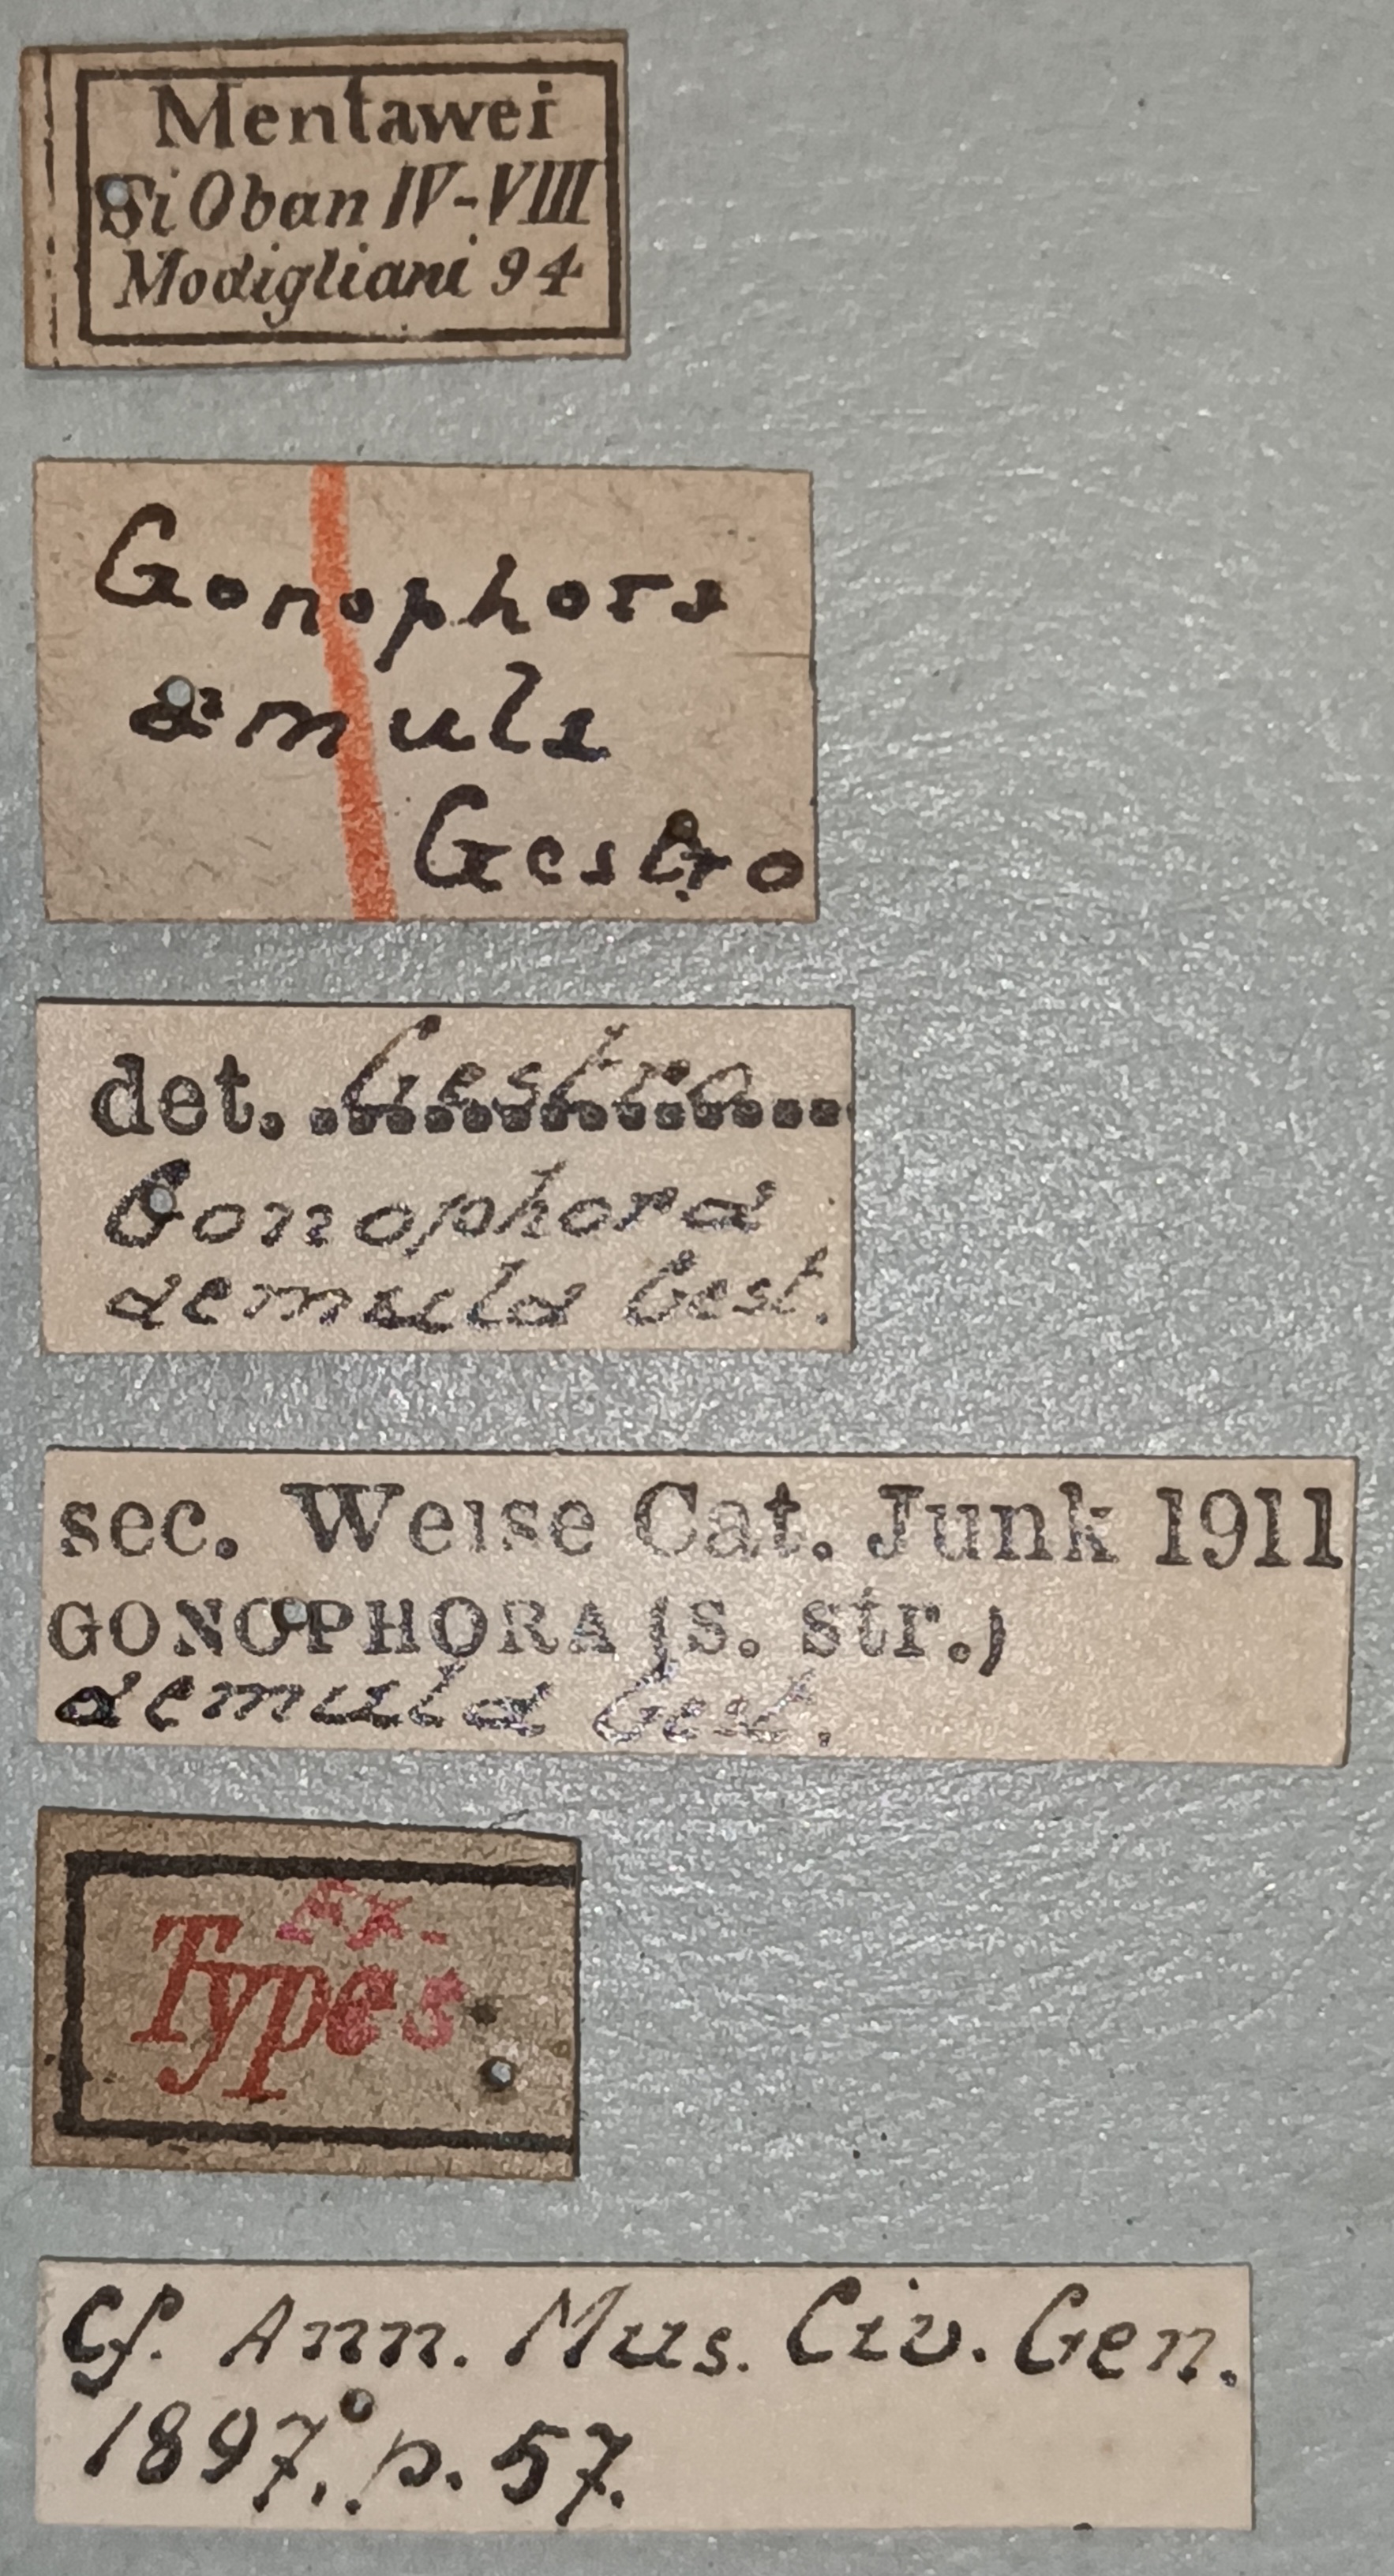 Mentawei
Si Oban IV-VIII
Modigliani 94
Gonophora
æmula
Gestro
det. Gestro
Gonophora
aemula Gest.
sec. Weise Cat. Junk 1911
GONOPHORA (s. str.)
aemula Gest.
Ex-
Types
Cf. Ann. Mus. Civ. Gen.
1897. p. 57.